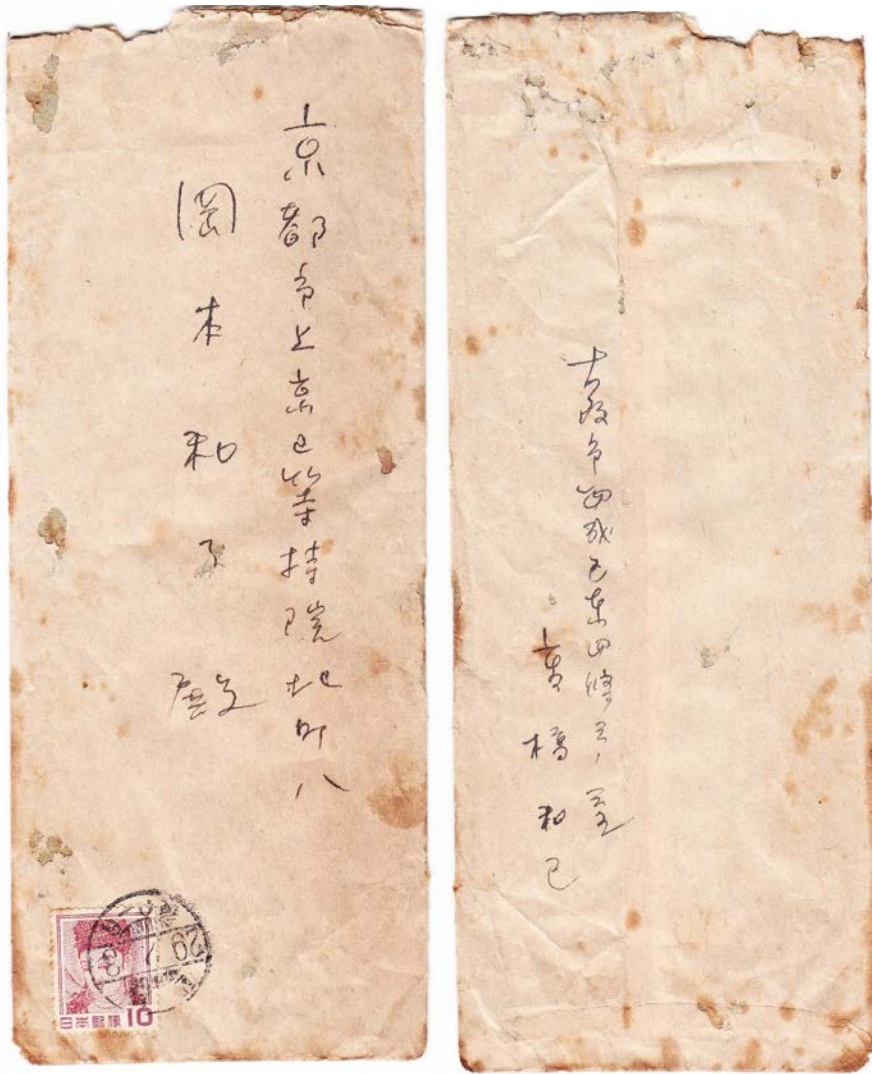 京都市上京区等持院北町八
岡本和子殿
日本郵便 10
29
大阪市西成区東四條三ノ
高橋和巳